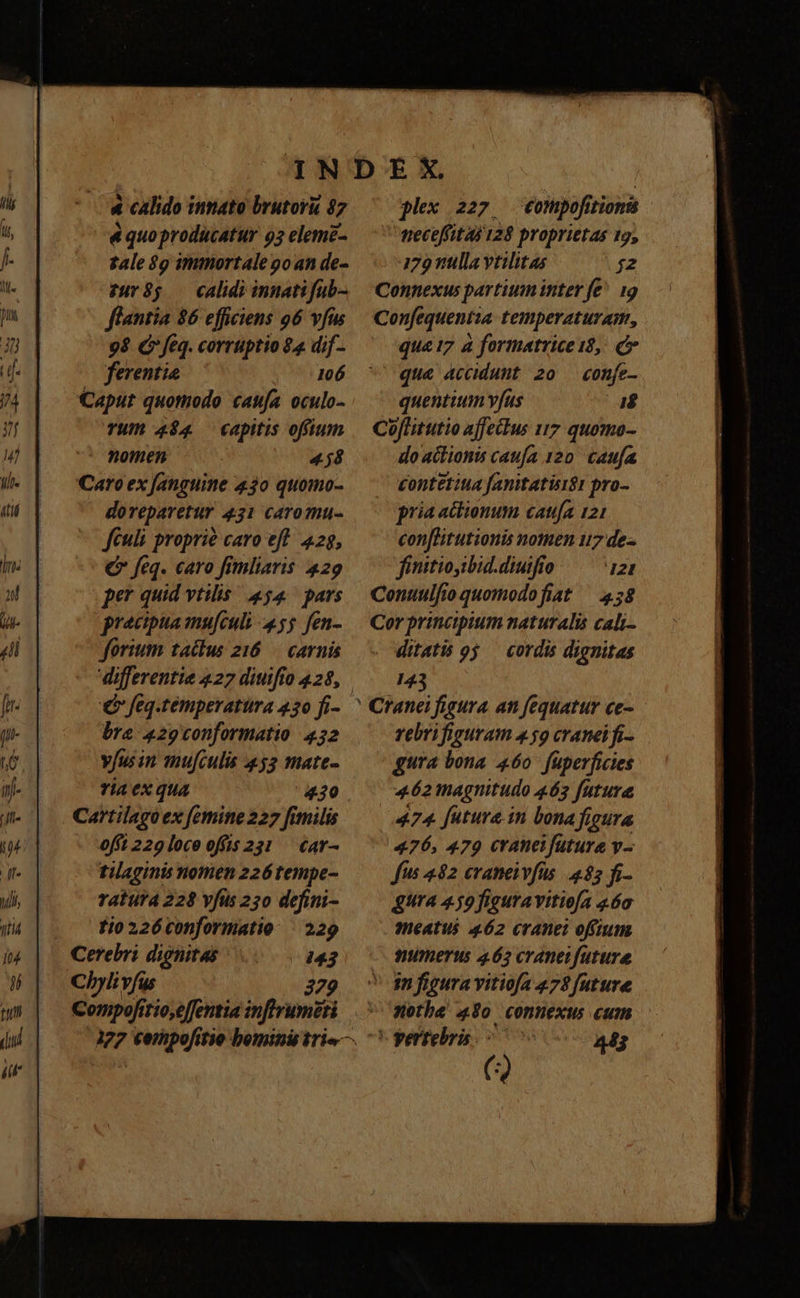 INDEX.
à calido innato brutorū 87
à quo producatur 93 elemē-
tale 89 immortale 90 an de-
tur 85 calidi innati ſub-
ſtantia 86 efficiens 96 vſus
98 & ſeq. corruptio 84. dif-
ferentiæ 106
Caput quomodo cauſa oculo-
rum 484 capitis oſſium
nomen 458
Caro ex ſanguine 430 quomo-
do reparetur 431 caro mu-
ſculi propriè caro eſt 428,
& ſeq. caro ſimiliaris 429
per quid vtilis 454 pars
præcipua muſculi 455 ſen-
ſorium tactus 216 carnis
differentiæ 427 diuiſio 428,
& ſeq. temperatura 430 fi-
bræ 429 conformatio 432
vſus in muſculis 453 mate-
ria ex qua 430
Cartilago ex ſemine 227 ſimilis
oſſi 229 loco oſſis 231 car-
tilaginis nomen 226 tempe-
ratura 228 vſus 230 defini-
tio 226 conformatio 229
Cerebri dignitas 143
Chyli vſus 379
Compoſitio, eſſentia inſtrumēti
177 compoſitio hominis tri-
plex 227 compoſitionis
neceſſitas 128 proprietas 19,
179 nulla vtilitas 52
Connexus partium inter ſe 19
Conſequentia temperaturam,
quæ 17 à formatrice 18, &
quæ accidunt 20 conſe-
quentium vſus 18
Cōſtitutio affectus 117 quomo-
do actionis cauſa 120 cauſa
contētiua ſanitatis 181 pro-
pria actionum cauſa 121
conſtitutionis nomen 117 de-
finitio, ibid. diuiſio 121
Conuulſio quomodo fiat 438
Cor principium naturalis cali-
ditatis 95 cordis dignitas
143
Cranei figura an ſequatur ce-
rebri figuram 459 cranei fi-
gura bona 460 ſuperficies
462 magnitudo 463 ſuturæ
474 ſuturæ in bona figura
476, 479 cranei ſuturæ v-
ſus 482 cranei vſus 483 fi-
gura 459 figura vitioſa 460
meatus 462 cranei oſſium
numerus 463 cranei ſuturæ
in figura vitioſa 478 ſuturæ
nothæ 480 connexus cum
vertebris 483